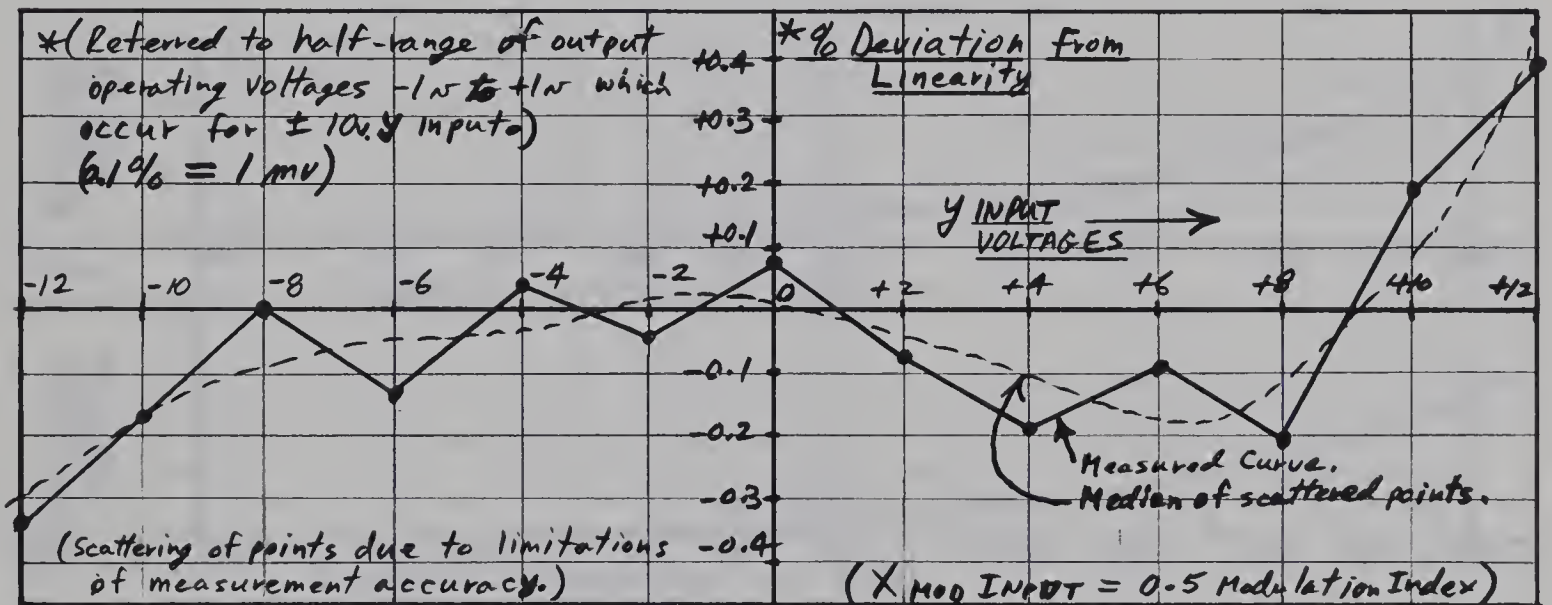 *(Referred to half-range of output
operating voltages -1v to +1v which
occur for ± 10v. y input.)
(0.1% = 1 mv)
*% Deviation from
Linearity
+0.4
+0.3
+0.2
+0.1
y INPUT
VOLTAGES
-12 -10 -8 -6 -4 -2 0 +2 +4 +6 +8 +10 +12
-0.1
-0.2
-0.3
-0.4
Measured Curve.
Median of scattered points.
(Scattering of points due to limitations
of measurement accuracy.)
(X MOD INPUT = 0.5 Modulation Index)